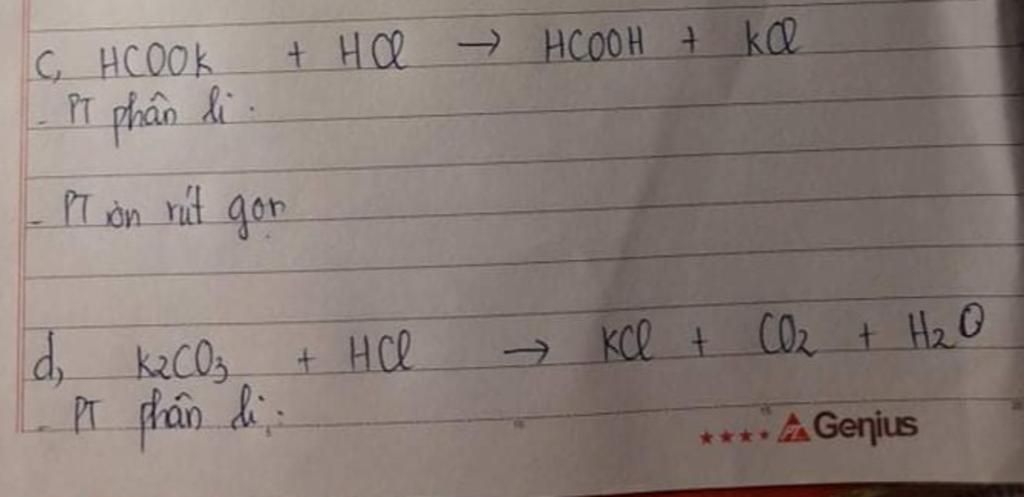 c, HCOOK + HCl → HCOOH + KCl
- PT phân li:
- PT ion rút gọn
d, K2CO3 + HCl → KCl + CO2 + H2O
- PT phân li:
★★★★ Genius